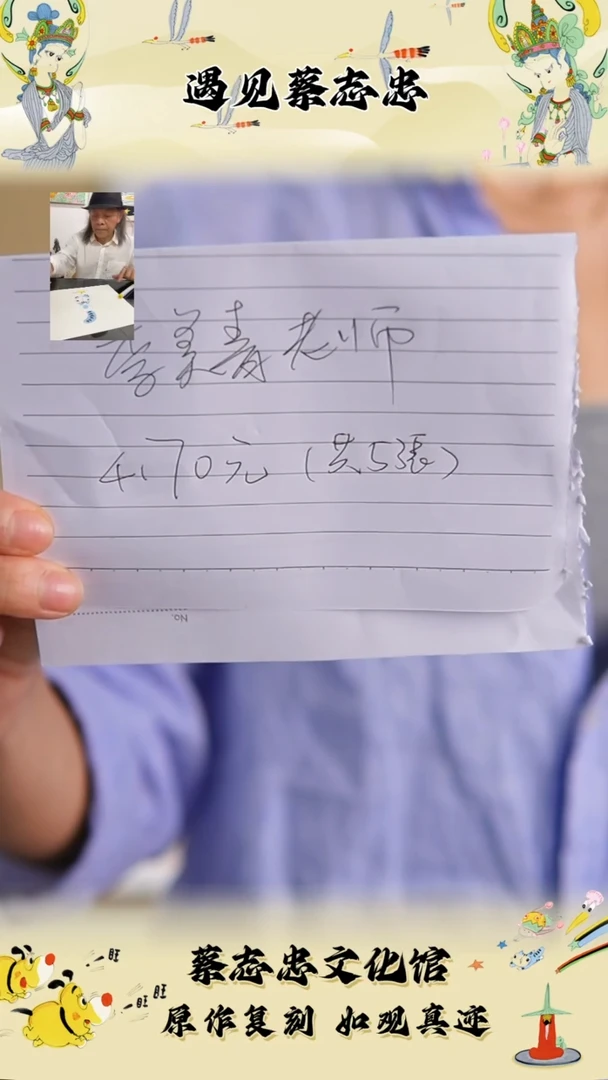 遇见蔡志忠
李美青老师
4170元（共5張）
No.
旺
旺 旺
蔡志忠文化馆
原作复刻 如观真迹